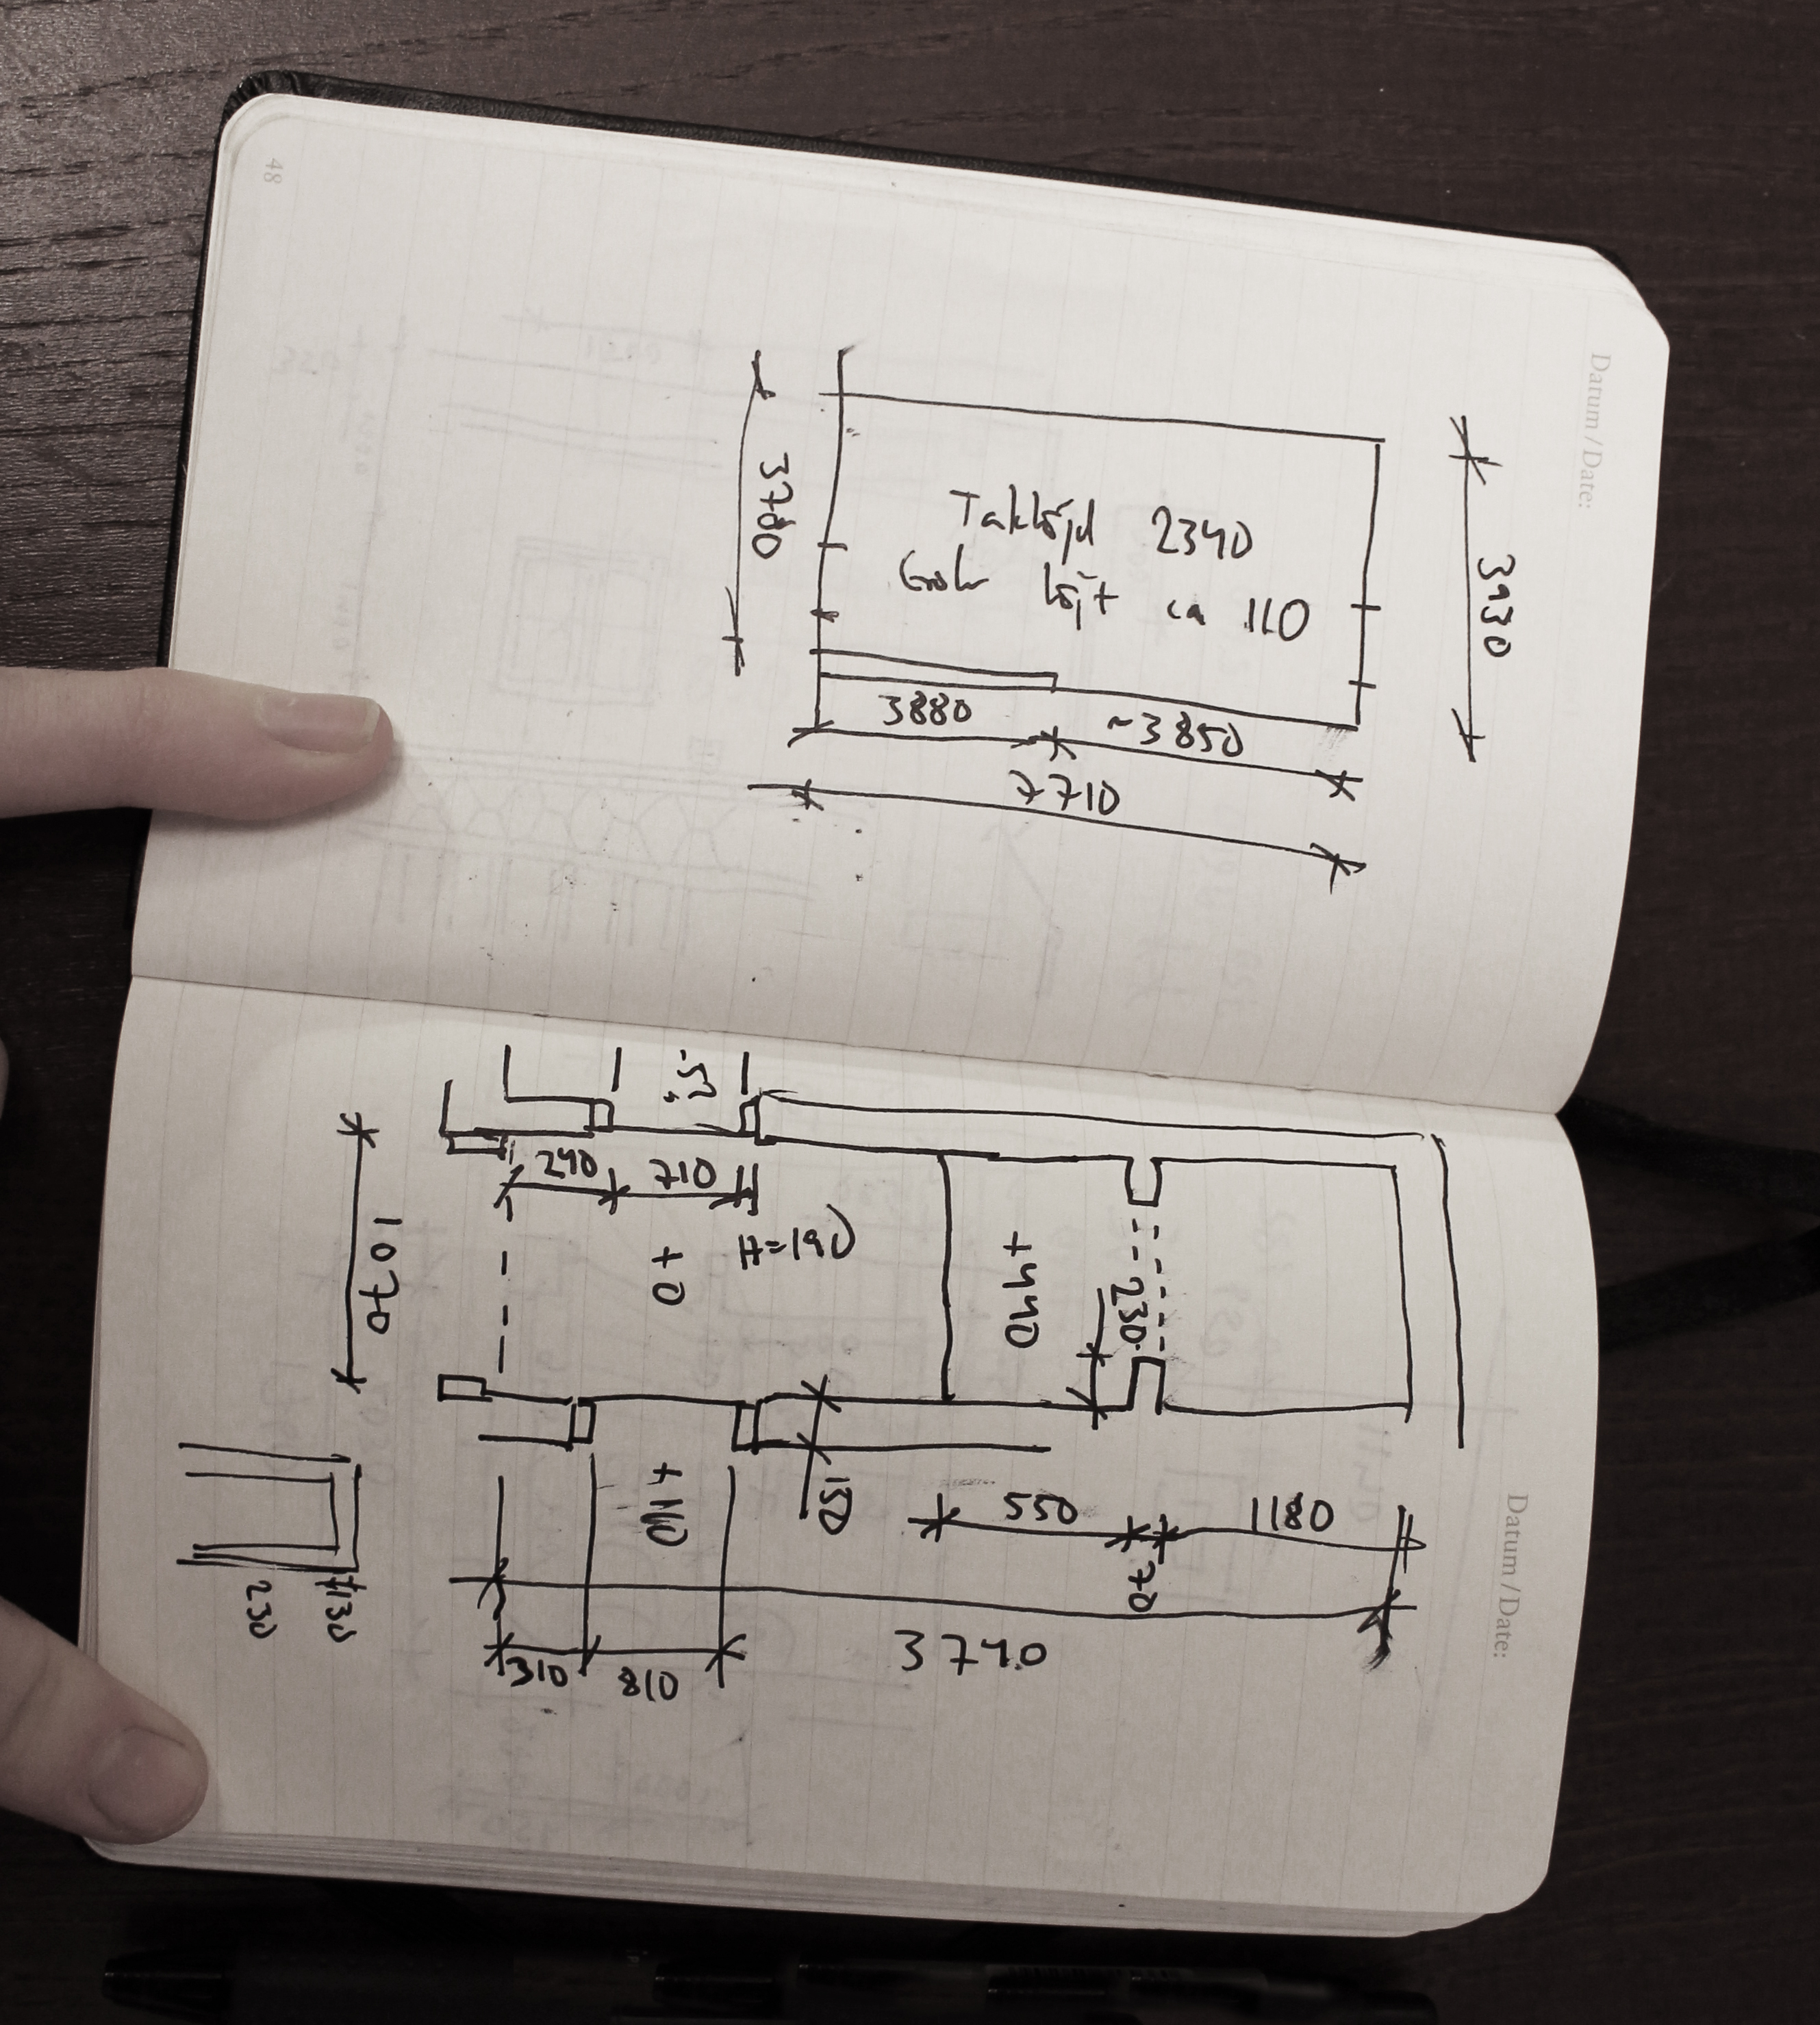 48
Datum/Date:
3780
Takhöjd 2340
Golv höjt ca 110
3930
3880
~3850
7710
Datum/Date:
240
710
H=190
+0
+440
230
1070
+110
130
550
1180
70
230
130
3740
310
810